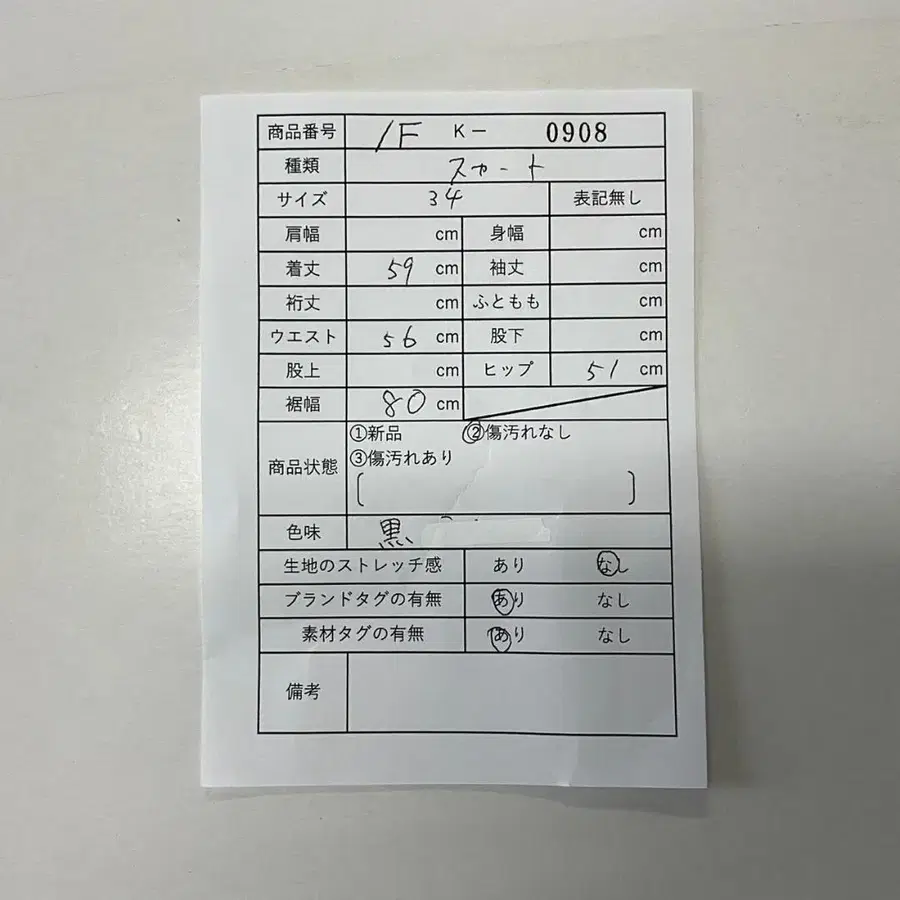 商品番号 1F K- 0908
種類 スカート
サイズ 34 表記無し
肩幅 cm 身幅 cm
着丈 59 cm 袖丈 cm
裄丈 cm ふともも cm
ウエスト 56 cm 股下 cm
股上 cm ヒップ 51 cm
裾幅 80 cm
商品状態 ①新品 ②傷汚れなし
③傷汚れあり
[ ]
色味 黒
生地のストレッチ感 あり なし
ブランドタグの有無 あり なし
素材タグの有無 あり なし
備考